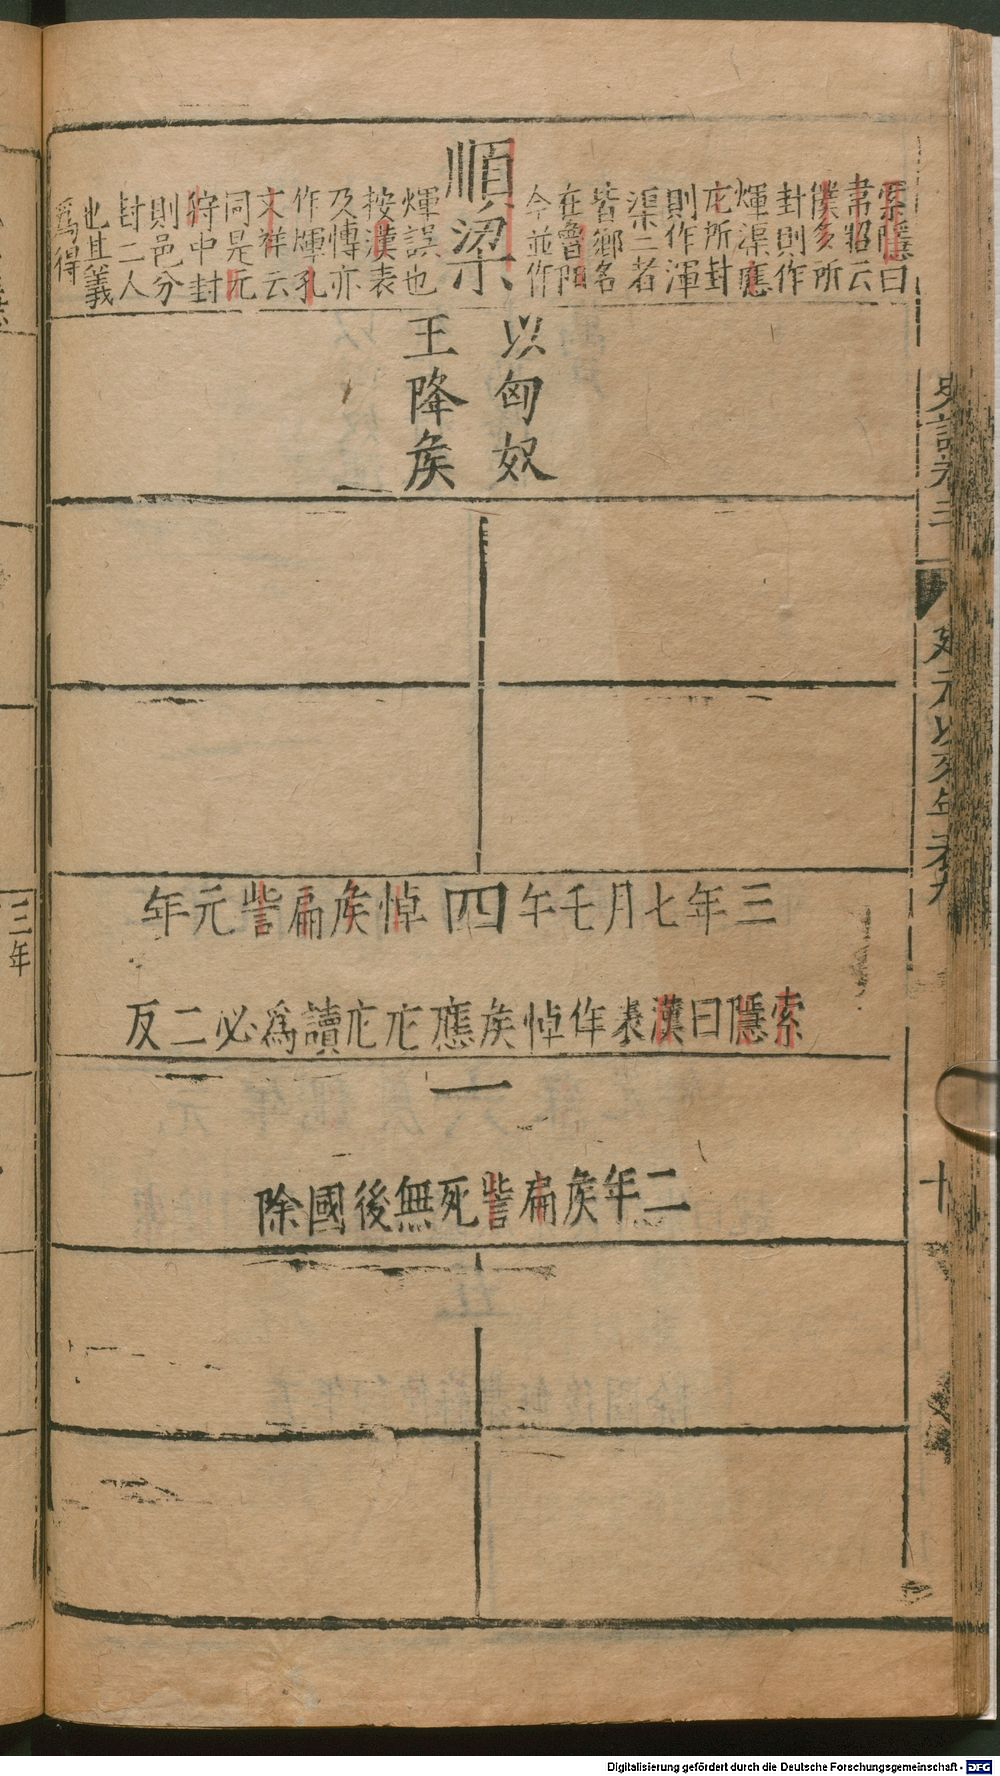 順梁
索隱曰
韋昭云
僕多所
封則作
煇渠應
庀所封
則作渾
渠二者
皆鄉名
在魯陽
今並作
煇誤也
按漢表
及傳亦
作煇孔
文祥云
同是元
狩中封
則邑分
封二人
也且義
爲得
以匈奴
王降侯
三年七月壬午四悼侯扁訾元年
索隱曰漢表作悼侯應庀庀讀爲必二反
一
二年侯扁訾死無後國除
史記卷二
建元以來年表
十
三年
Digitalisierung gefördert durch die Deutsche Forschungsgemeinschaft - DFG